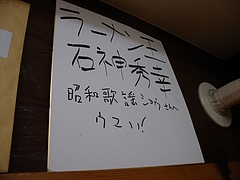 ラーメン王
石神秀幸
昭和歌謡ショウさんへ
ウマい!